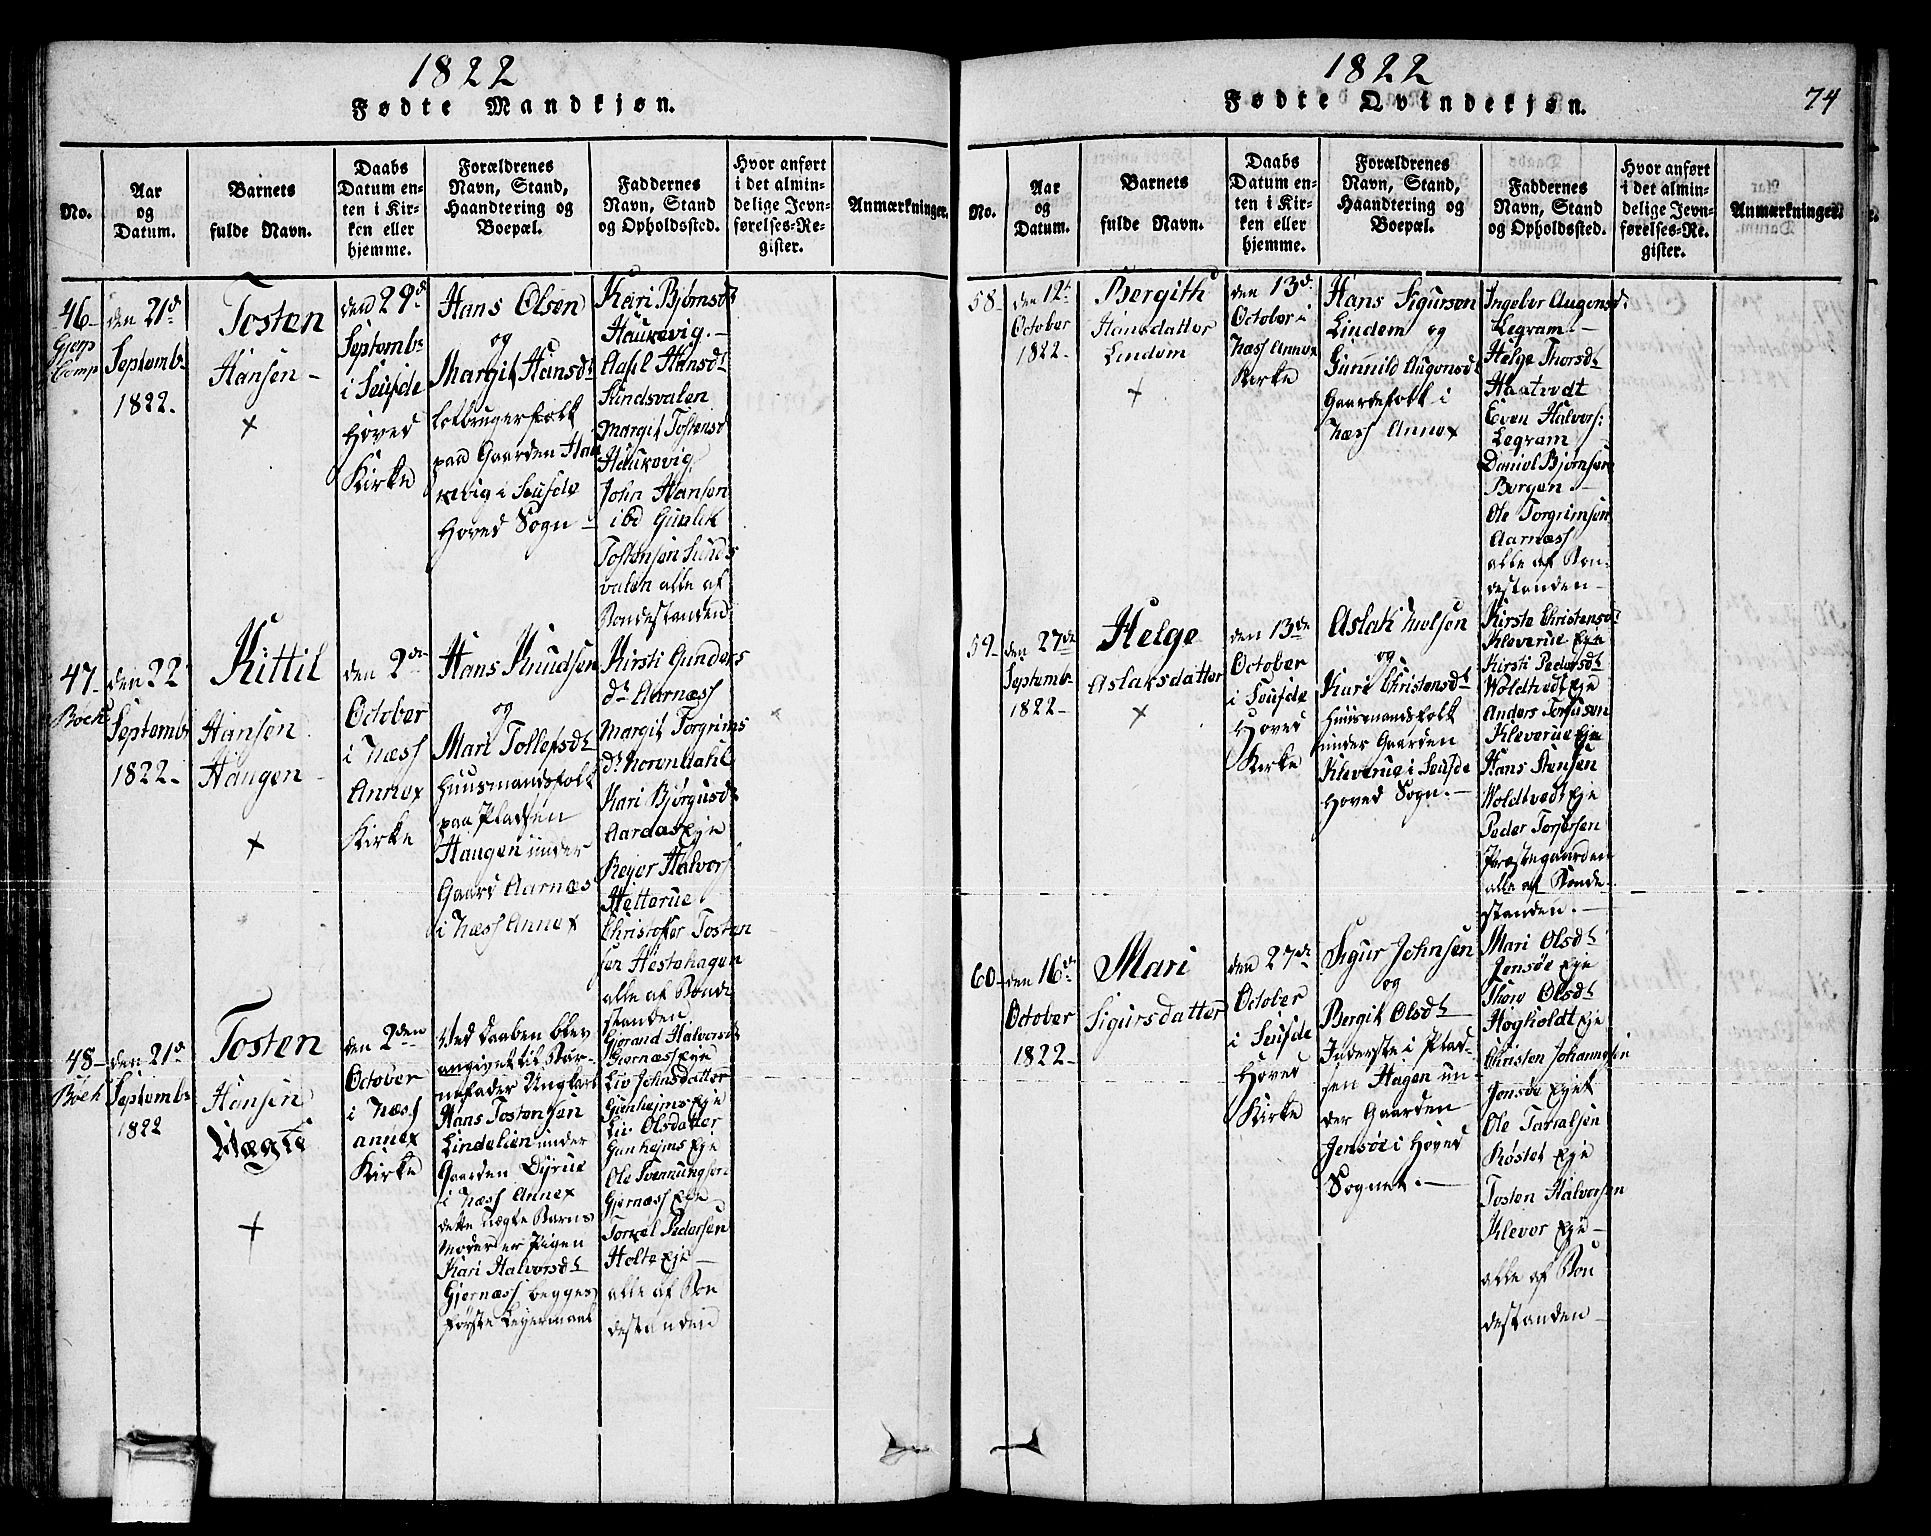 1822
Fødte Mandkjøn.
No.
Aar
og
Datum.
Barnets
fulde Navn.
Daabs
Datum en-
ten i Kir-
ken eller
hjemme.
Forældrenes
Navn, Stand,
Haandtering og
Boepæl.
Faddernes
Navn, Stand
og Opholdssted.
Hvor anført
i det almin-
delige Jevn-
førelses-Re-
gister.
Anmærkninger.
46-
den 21d
Septembr
1822.
Tosten
Hansen -
+
den 29d
Septembr
i Seufde
Hoved
Kirke
Hans Olsen
og
Margit Hansdt
paa Gaarden Hau
kevig i Seufde
Hoved Sogn -
Kari Bjørnsdt
Haukevig.-
Aasil Hansdt
Sundsvalen
Margit Tostensd
Haukevig.
John Hansen
ibd Gunlek
Tostensen Sunds
valen alle af
Bondestanden
47-
Bøeh
den 22
Septembr
1822-
Kittil
Hansen
Haugen -
+
den 2den
October
i Næss
Annex
Kirke
Hans Knudsen
og
Mari Tollefsdt
Huusmandsfolk
paa Pladsen
Haugen under
Gaard Aarnæs
i Næss Annex
Kirsti Gunders
dt Aarnæss
Margit Torgrims
dt Norendahl
Kari Bjørgusdt
Aardas Eje
Rejer Halvors
Hetterue
Christofer Tosten
sen Hestehagen
alle af Bonde
standen
48-
Bøeh
den 21d
Septembr
1822
Tosten
Hansen
Uægte
+
den 2den
October
i Næss
annex
Kirke
Ved Daaben blev
angivet til Bar-
nefader Ungkarl
Hans Tostensen
Lindelien under
Gaarden Dyrue
i Næss Annex
dette uægte Barns
Moder er Pigen
Kari Halvorsdt
Gjernæss begges
første Lejermaal
Gjørand Halvorsdt
Gjernæss Eje
Liv Johnsdatter
Gunheims Eje
Liv Olsdatter
Gunheims Eje
Ole Svennungsen
Gjernæss Eje
Torkel Pedersen
Holte Eje -
alle af Bon
destanden
1822
Fødte Qvindekjøn.
74
No.
Aar
og
Datum.
Barnets
fulde Navn.
Daabs
Datum en-
ten i Kir-
ken eller
hjemme.
Forældrenes
Navn, Stand,
Haandtering og
Boepæl.
Faddernes
Navn, Stand
og Opholdssted.
Hvor anført
i det almin-
delige Jevn-
førelses-Re-
gister.
Anmærkninger.
58-
den 12t
October
1822-
Bergith
Hansdatter
Lindem
+
den 13d
October i
Næss Annex
Kirke
Hans Sigursen
Lindem og
Gunnild Augonsdt
Gaardefolk i
Næss Annex
Ingebor Augonsdt
Legram.-
Helge Thorsdt
Haatvedt
Even Halvors:
Legram
Daniel Bjørnsen
Borgen.-
Ole Torgrimsen
Aarnæss
alle af Bon-
destanden-
59-
den 27de
Septembr
1822-
Helge
Aslaksdatter
+
den 13de
October
i Seufde
Hoved
Kirke
Aslak Nielsen
og
Kari Christensdt
Huusmandsfolk
under Gaarden
Kleverue i Seufde
Hoved Sogn.-
Kirste Christensdt
Kleverue Eje
Kirsti Pedersdt
Woldtvedt Eje
Anders Torjusen
Kleverue Eje
Hans Stensen
Woldtvedt Eje
Peder Torjersen
Præstegaarden
alle af Bonde
standen.-
60-
den 16de
October
1822-
Mari
Sigursdatter
den 27de
October
i Seufde
Hoved
Kirke
Sigur Johnsen
og
Bergit Olsdt
Inderste i Plad-
sen Hagen un-
der Gaarden
Jensøe i Hoved
Sognet.-
Mari Olsdt
Jensøe Eje
Thore Olsdt
Høgholdt Eje
Christen Johannesen
Jensøe Ejet
Ole Tarialsen
Røstet Eje
Tosten Halvorsen
Klever Eje-
alle af Bon
destanden-